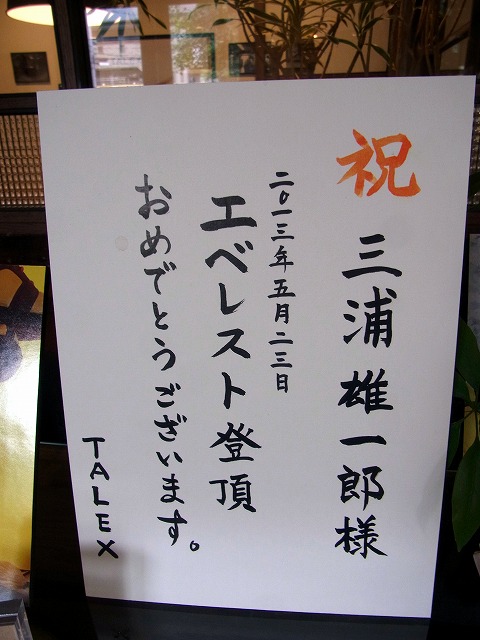 祝 三浦雄一郎様
二〇一三年五月二三日
エベレスト登頂
おめでとうございます。
TALEX